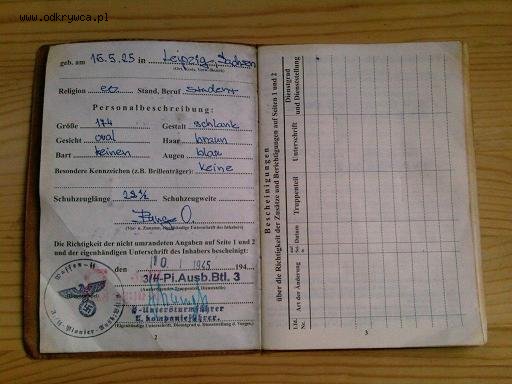 www.odkrywca.pl
geb. am 16.5.25 in Leipzig, Sachsen
(Ort, Kreis, Verw.-Bezirk)
Religion ev. Stand, Beruf Student
Personalbeschreibung:
Größe 174 Gestalt schlank
Gesicht oval Haar braun
Bart keinen Augen blau
Besondere Kennzeichen (z.B. Brillenträger): keine
Schuhzeuglänge 29½ Schuhzeugweite
(Vor- u. Zuname, eigenhändige Unterschrift des Inhabers)
Die Richtigkeit der nicht umrandeten Angaben auf Seite 1 und 2
und der eigenhändigen Unterschrift des Inhabers bescheinigt:
den 10 1 1945 194
Pi.Ausb.Btl. 3
Waffen-SS
Untersturmführer
(Eigenhändige Unterschrift, Dienstgrad u. Dienststellung d. Vorges.)
2
Bescheinigungen
über die Richtigkeit der Zusätze und Berichtigungen auf Seiten 1 und 2
Lfd. Nr.
Art der Änderung
auf S.
Datum
Truppenteil
Unterschrift
Dienstgrad und Dienststellung
3